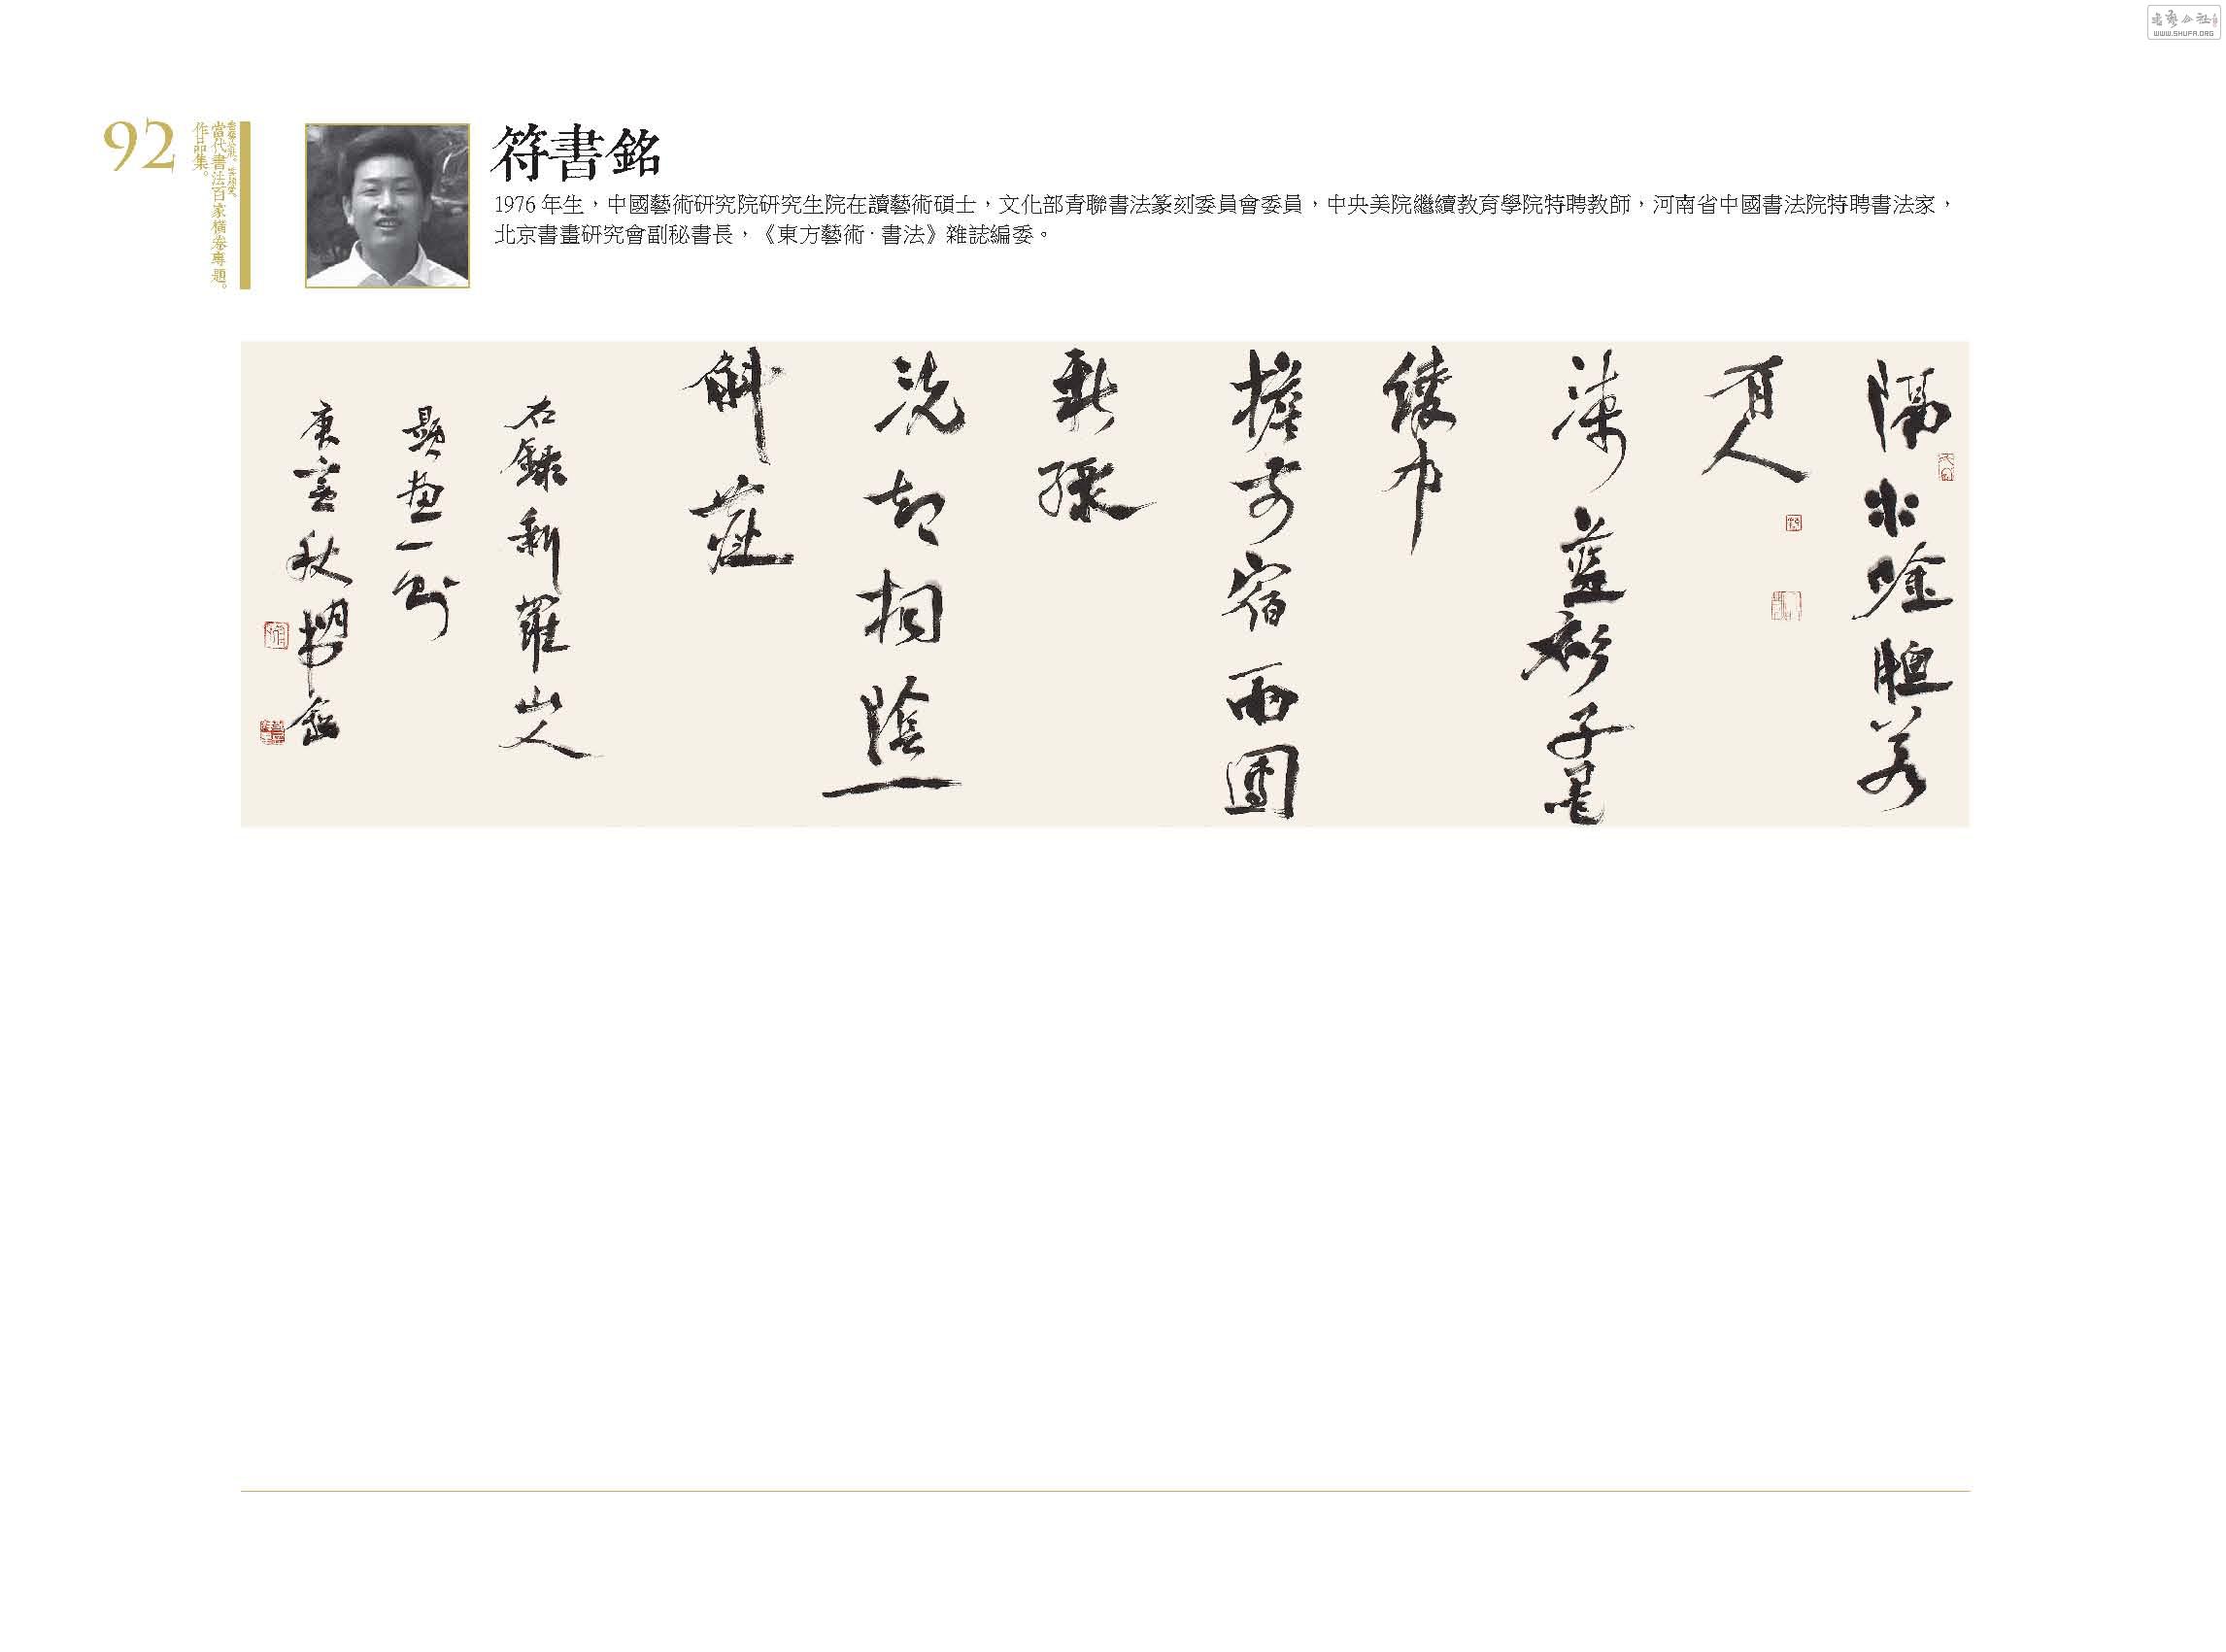 92
當代書法百家橫卷專題。
作品集。
符書銘
1976 年生，中國藝術研究院研究生院在讀藝術碩士，文化部青聯書法篆刻委員會委員，中央美院繼續教育學院特聘教師，河南省中國書法院特聘書法家，
北京書畫研究會副秘書長，《東方藝術·書法》雜誌編委。
隔水唫牕若
有人
藍衫子墨
綾巾
宿雨團
新綠
洗却桐陰一
斛塵
右錄新羅山人
題畫一則
庚寅秋書銘
WWW.SHUFA.ORG